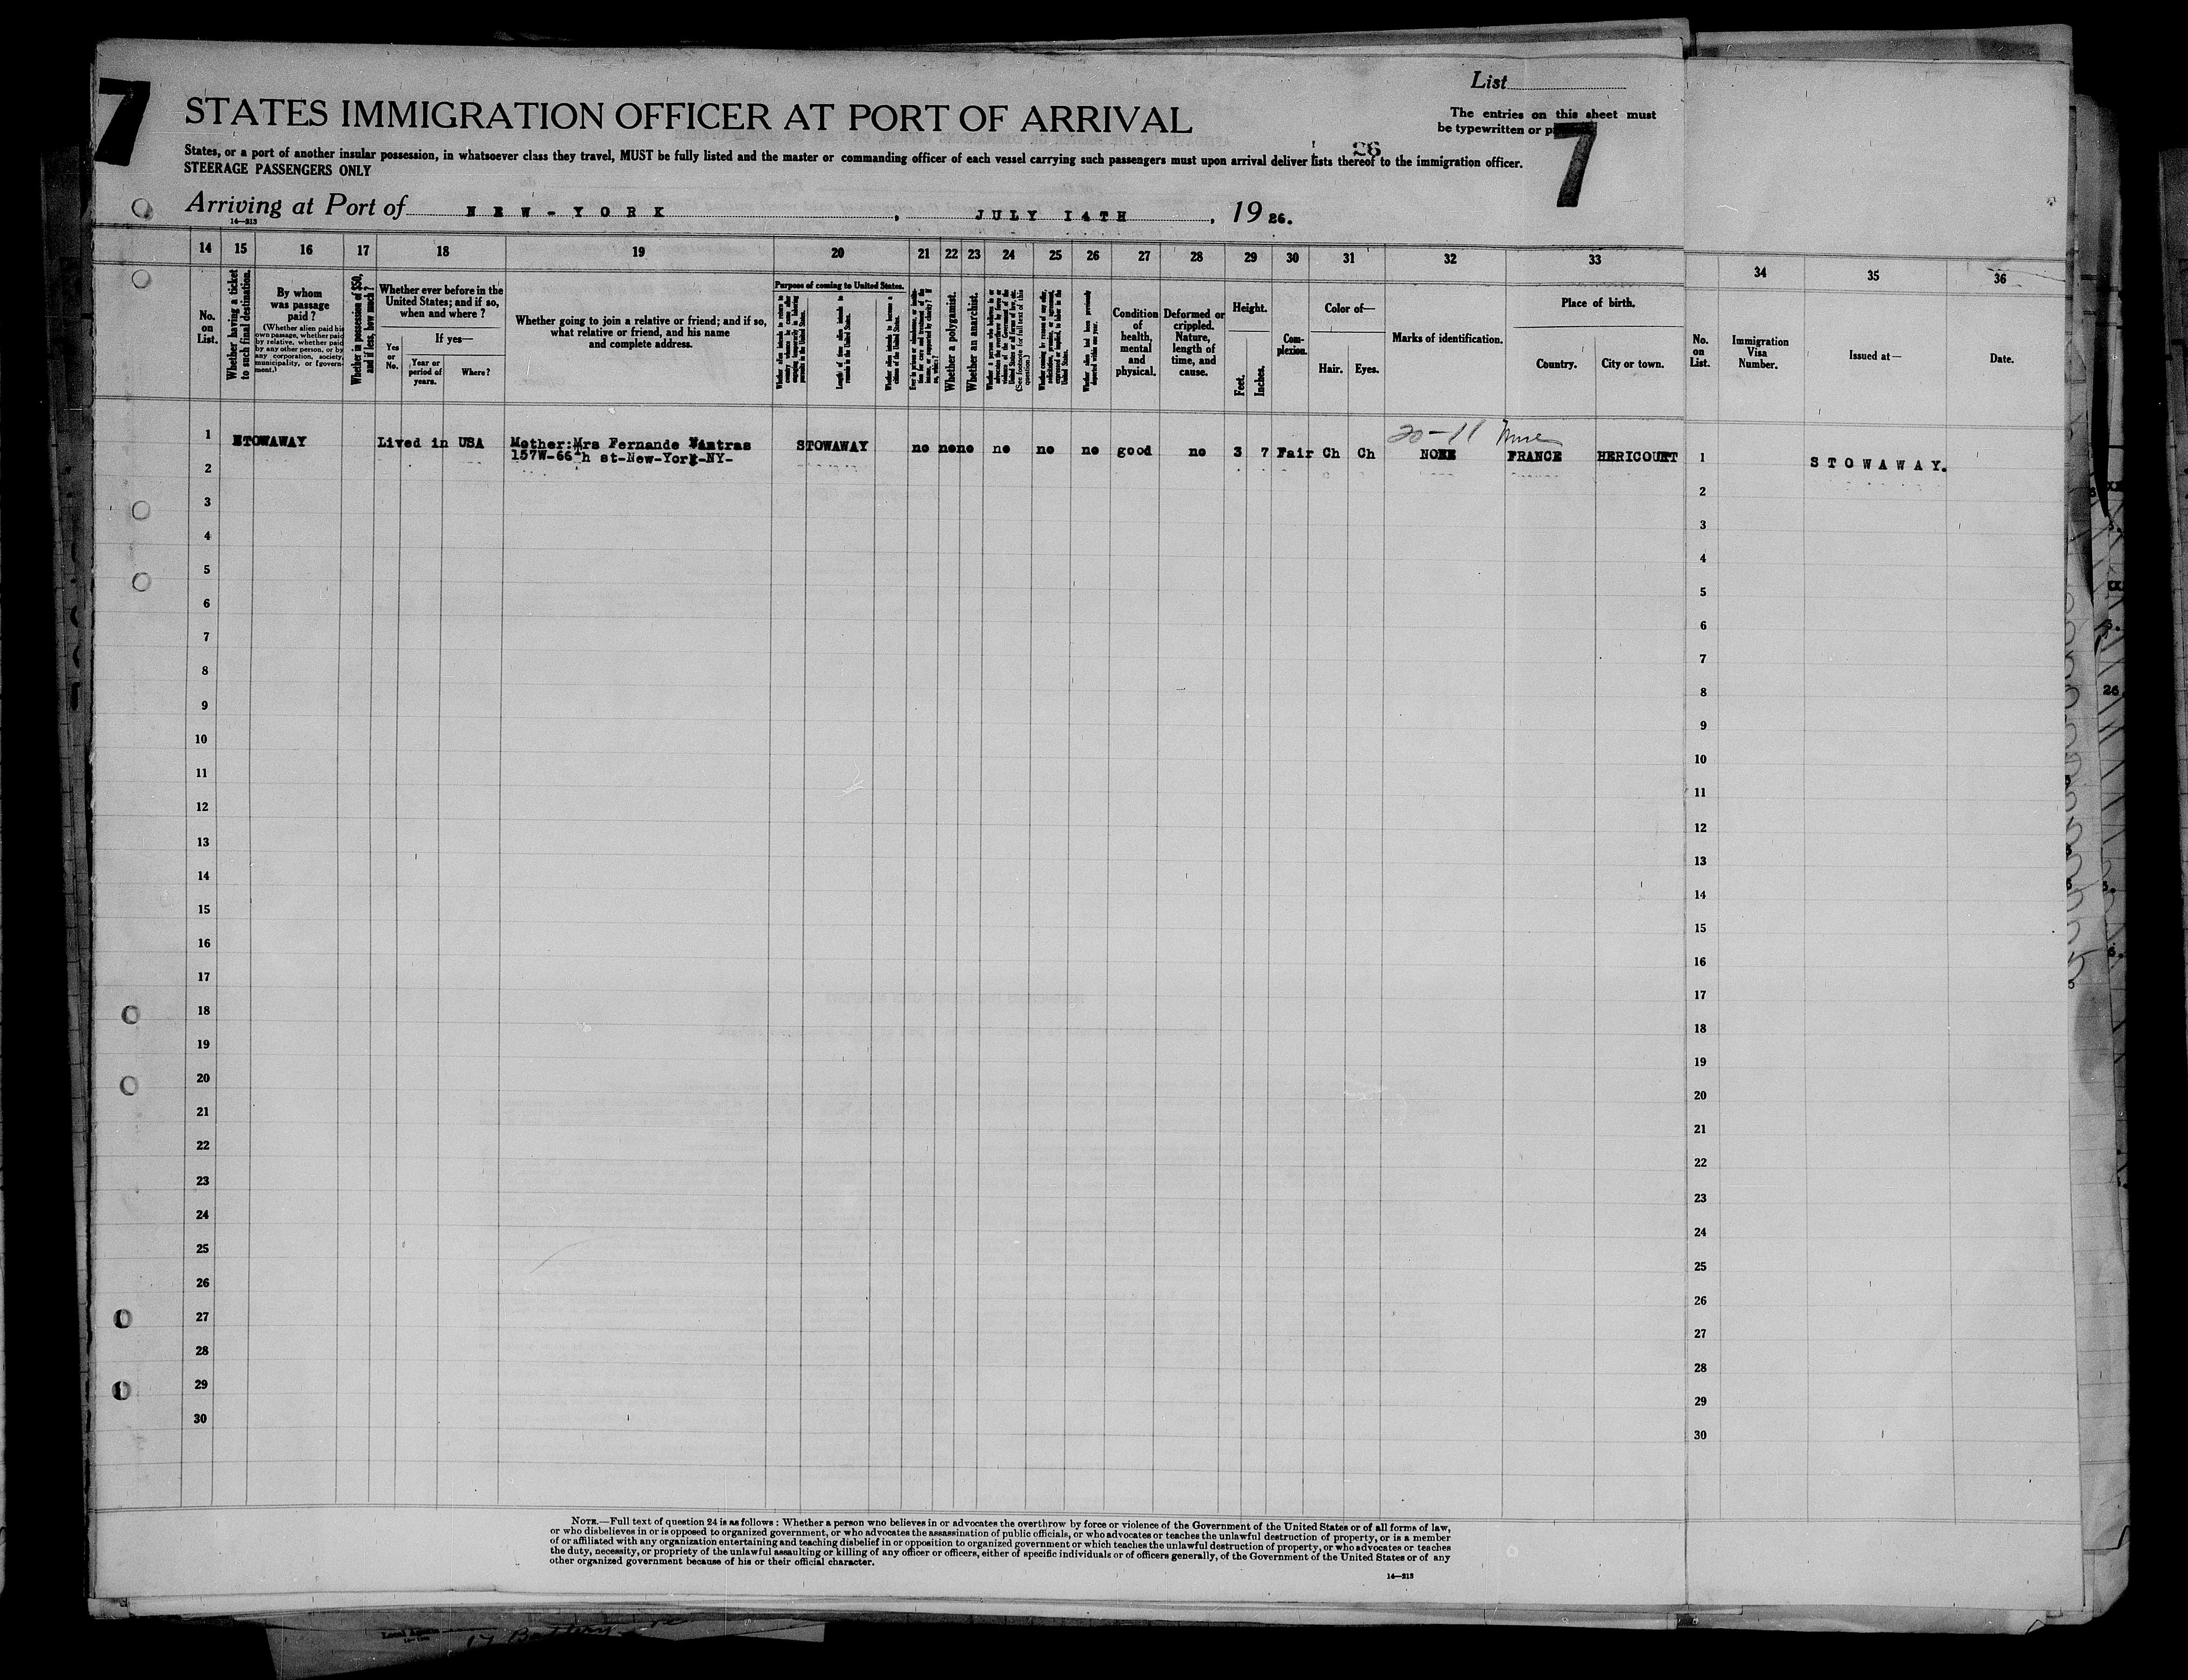 7
List
STATES IMMIGRATION OFFICER AT PORT OF ARRIVAL
The entries on this sheet must
be typewritten or
7
26
States, or a port of another insular possession, in whatsoever class they travel, MUST be fully listed and the master or commanding officer of each vessel carrying such passengers must upon arrival deliver lists thereof to the immigration officer.
STEERAGE PASSENGERS ONLY
Arriving at Port of NEW-YORK, JULY I4TH, 1926.
14—213
14 15 16 17 18 19 20 21 22 23 24 25 26 27 28 29 30 31 32 33 34 35 36
No. on List.
Whether having a ticket to such final destination.
By whom was passage paid?
(Whether alien paid his own passage, whether paid by relative, whether paid by any other person, or by any corporation, society, municipality, or government.)
Whether in possession of $50, and if less, how much?
Whether ever before in the United States; and if so, when and where?
Yes or No.
If yes—
Year or period of years.
Where?
Whether going to join a relative or friend; and if so, what relative or friend, and his name and complete address.
Purpose of coming to United States.
Length of time alien intends to remain in the United States.
Whether alien intends to become a citizen of the United States.
Whether a polygamist.
Whether an anarchist.
(See footnote for full text of this question.)
Whether alien had been previously deported within one year.
Condition of health, mental and physical.
Deformed or crippled. Nature, length of time, and cause.
Height.
Feet.
Inches.
Complexion.
Color of—
Hair.
Eyes.
Marks of identification.
Place of birth.
Country.
City or town.
No. on List.
Immigration Visa Number.
Issued at—
Date.
20-11
1 STOWAWAY Lived in USA Mother:Mrs Fernande
157W-66th st-New-York-NY-
STOWAWAY no no no no no no good no 3 7 Fair Ch Ch NONE FRANCE HERICOURT 1 STOWAWAY.
2 2
3 3
4 4
5 5
6 6
7 7
8 8
9 9
10 10
11 11
12 12
13 13
14 14
15 15
16 16
17 17
18 18
19 19
20 20
21 21
22 22
23 23
24 24
25 25
26 26
27 27
28 28
29 29
30 30
NOTE.—Full text of question 24 is as follows: Whether a person who believes in or advocates the overthrow by force or violence of the Government of the United States or of all forms of law,
or who disbelieves in or is opposed to organized government, or who advocates the assassination of public officials, or who advocates or teaches the unlawful destruction of property, or is a member
of or affiliated with any organization entertaining and teaching disbelief in or opposition to organized government or which teaches the unlawful destruction of property, or who advocates or teaches
the duty, necessity, or propriety of the unlawful assaulting or killing of any officer or officers, either of specific individuals or of officers generally, of the Government of the United States or of any
other organized government because of his or their official character.
14—213